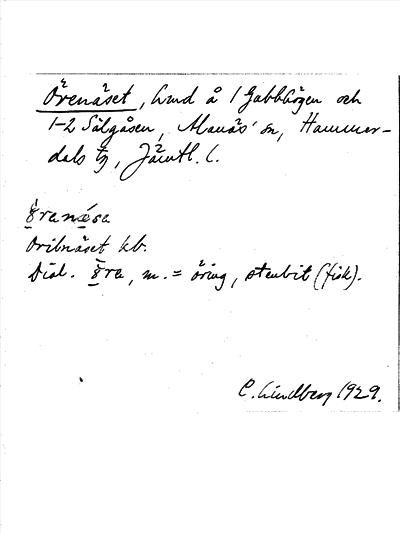 Örenäset, hmd å 1 Gabbhögen och
1-2 Sälgåsen, Manäs' sn, Hammer-
dals tg, Jämtl. l.
Öranésa
Oribnäset kb.
Dial. öra, m. = öring, stenbit (fisk).
C. Lindberg 1929.